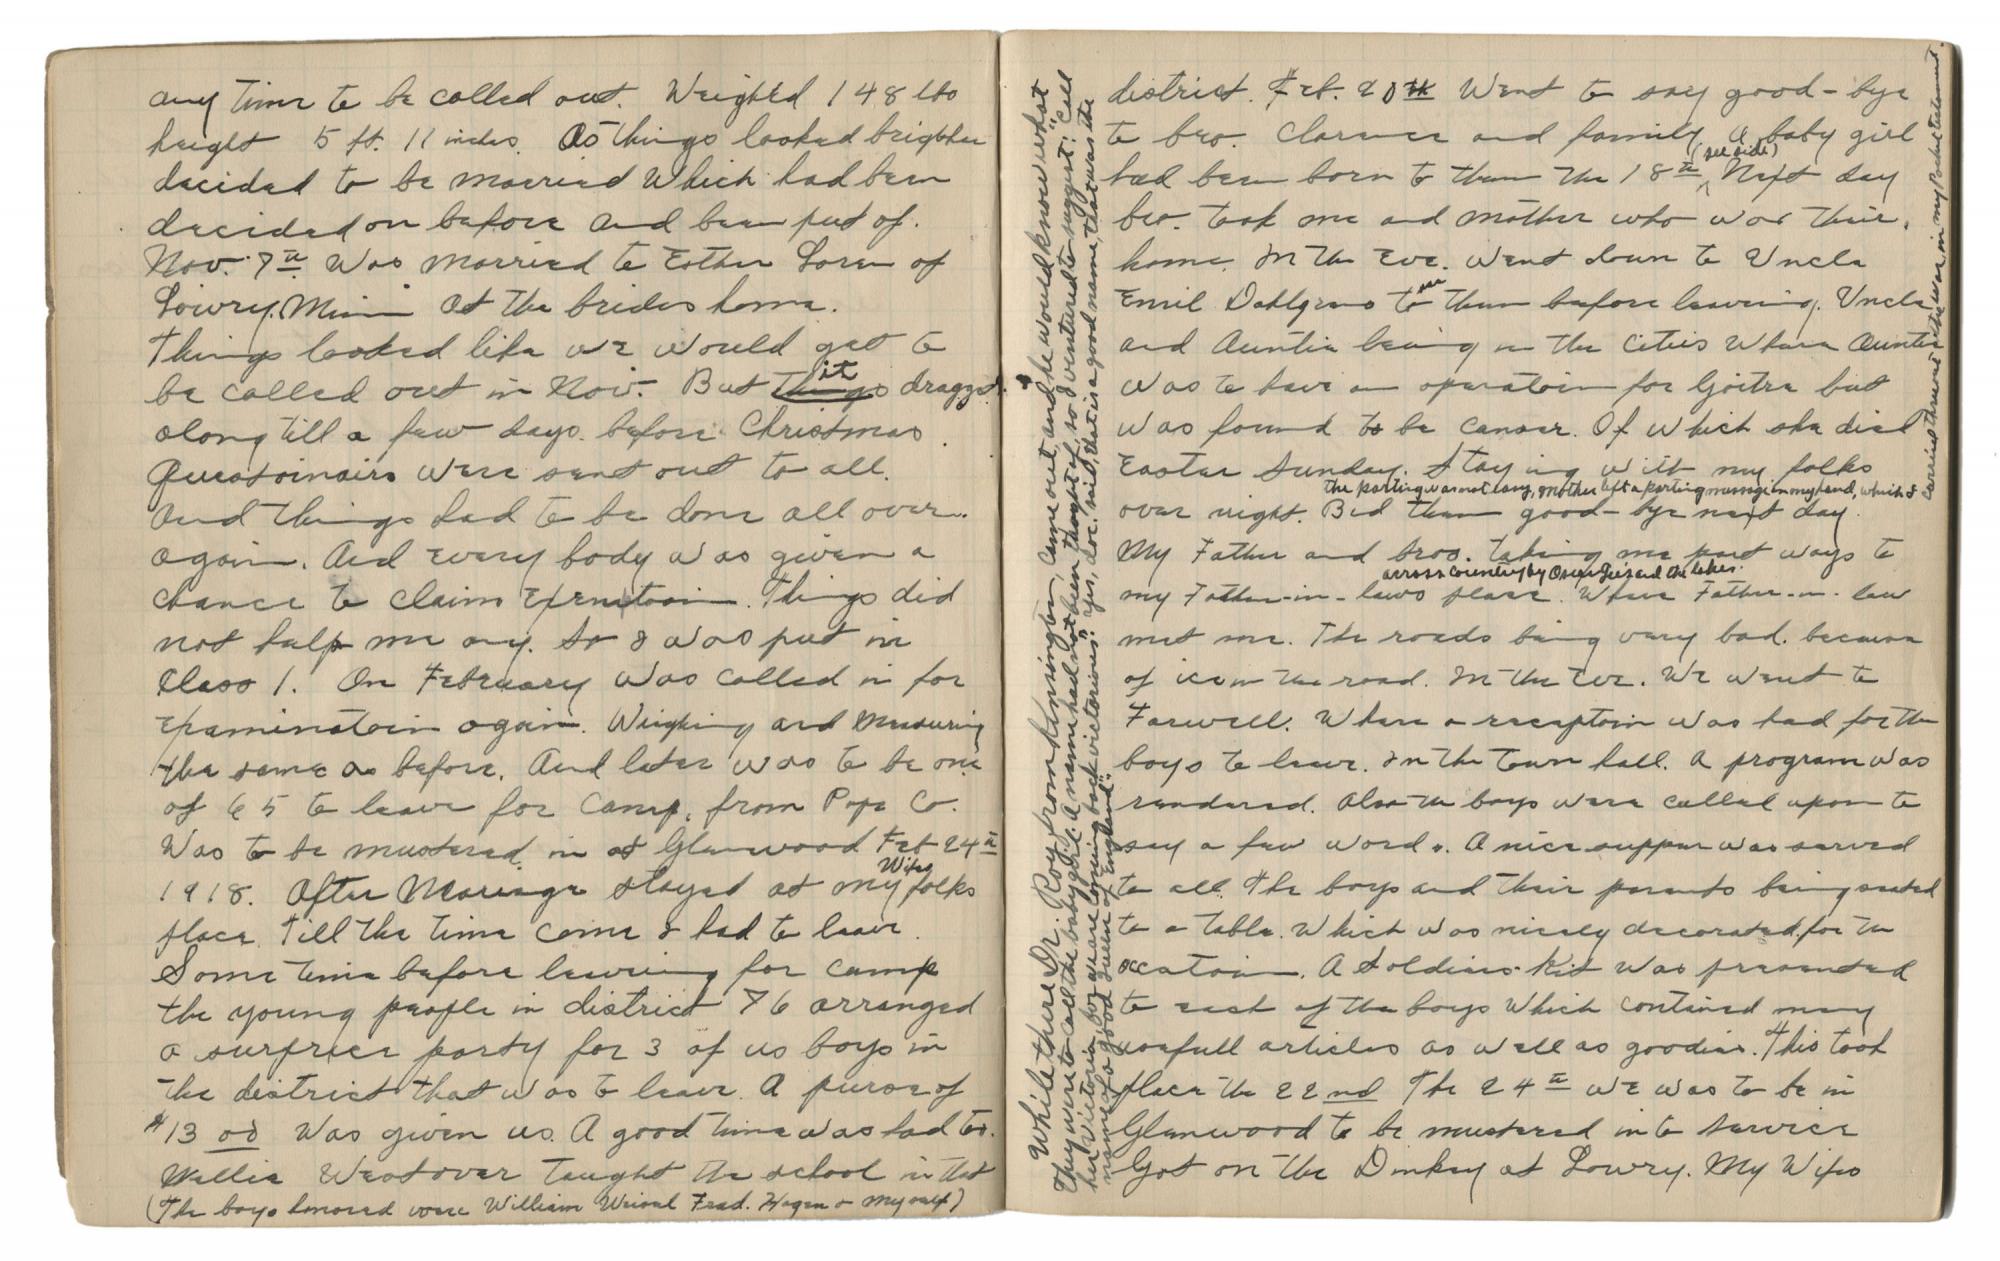 any time to be called out. Weighted 148 lbs
height 5 ft. 11 inches. As things looked brighter
decided to be married Which had been
decided on before and been put of.
Nov. 7th Was married to Esther Loren of
Lowry, Minn at the brides home.
Things looked like we would get to
be called out in Nov. But things it dragged
along till a few days before Christmas.
Questoinairs were sent out to all.
And things had to be done all over.
again. And every body was given a
chance to claim Exemtoin. Things did
not help me any. So I was put in
Class 1. On February was called in for
examinatoin again. Weighing and measuring
the same as before. And later was to be one
of 65 to leave for Camp, from Pope Co.
Was to be mustered in at Glenwood Feb 24th
1918. After Marriage stayed at my Wifes folks
place. Till the time come I had to leave.
Some time before leaving for camp
the young people in district 76 arranged
a surprise party for 3 of us boys in
the district that was to leave. A purse of
$13 00 Was given us. A good time was had to.
Westover taught the school in that
(The boys honored were William Fred. Hagen & myself)
district. Feb. 20th Went to say good-bye
to bro. Clarence and family, a baby girl
had been born to them the 18th (see side) Next day
bro. took me and mother who was their,
home. In the Eve. went down to Uncle
Emil Dahlgrens to see them before leaving. Uncle
and Auntie being in the Cities Where Auntie
was to have an operatoin for Goitre but
was found to be cancer. Of which she died
Easter Sunday. Staying with my folks
the parting was not easy, Mother left a parting message in my hand, which I
carried there and it was in my Pocket testament.
over night. Bid them good-bye next day.
My Father and bros. taking me part ways to
across country by and the lakes.
my Father-in-laws place. Where Father-in-law
met me. The roads being very bad. because
of ice on the road. In the Eve. We went to
Farwell. Where a receptoin was had for the
boys to leave. In the town hall. A program was
rendered. Also the boys were called upon to
say a few words. A nice supper was served
to all. The boys and their parents being seated
to a table. Which was nicely decorated, for the
occatoin. A Soldiers Kit was presented
to each of the boys Which contined many
usefull articles as well as goodies. This took
place the 22nd The 24th we was to be in
Glenwood to be mustered into service
Got on the Dinkey at Lowry. My Wife
While there Dr. Roy from Kensington, came out, and he would know what
they were to call the baby girl. A name had not been thought of, so I ventured to suggest: "Call
her Victoria, for we are coming back victorious." "Yes, doc. said, that is a good name, that was the
name of a good Queen of England"